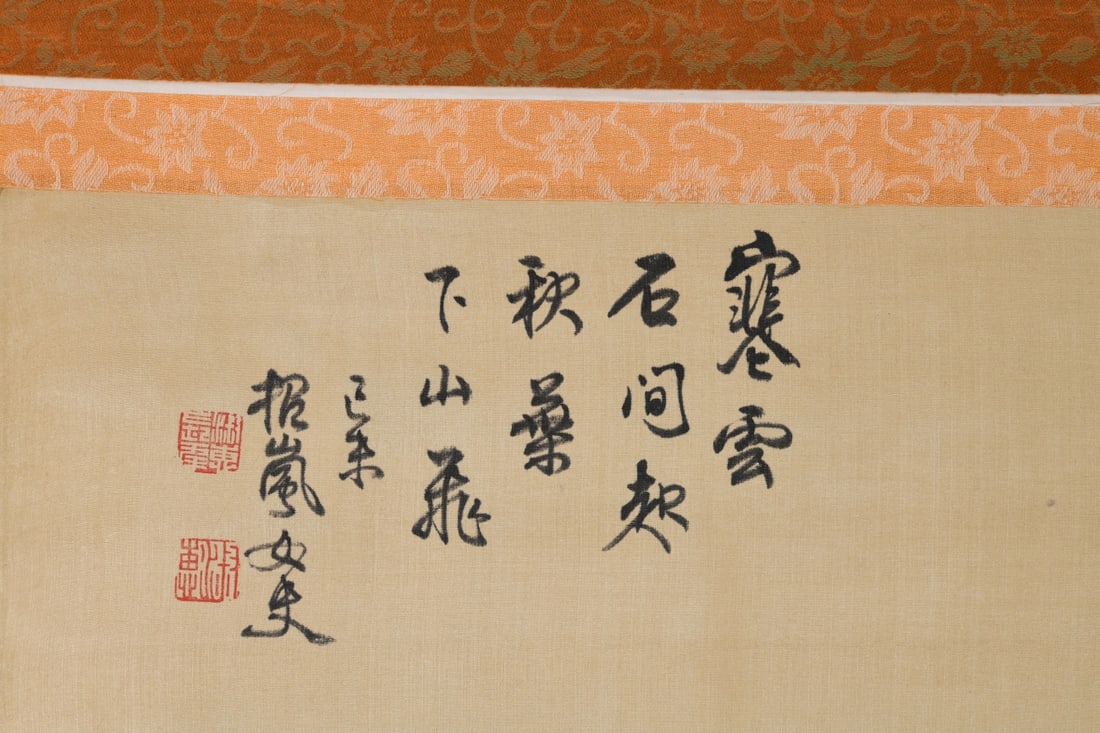 寒雲
石間起
秋葉
下山飛
己未
嵐女史